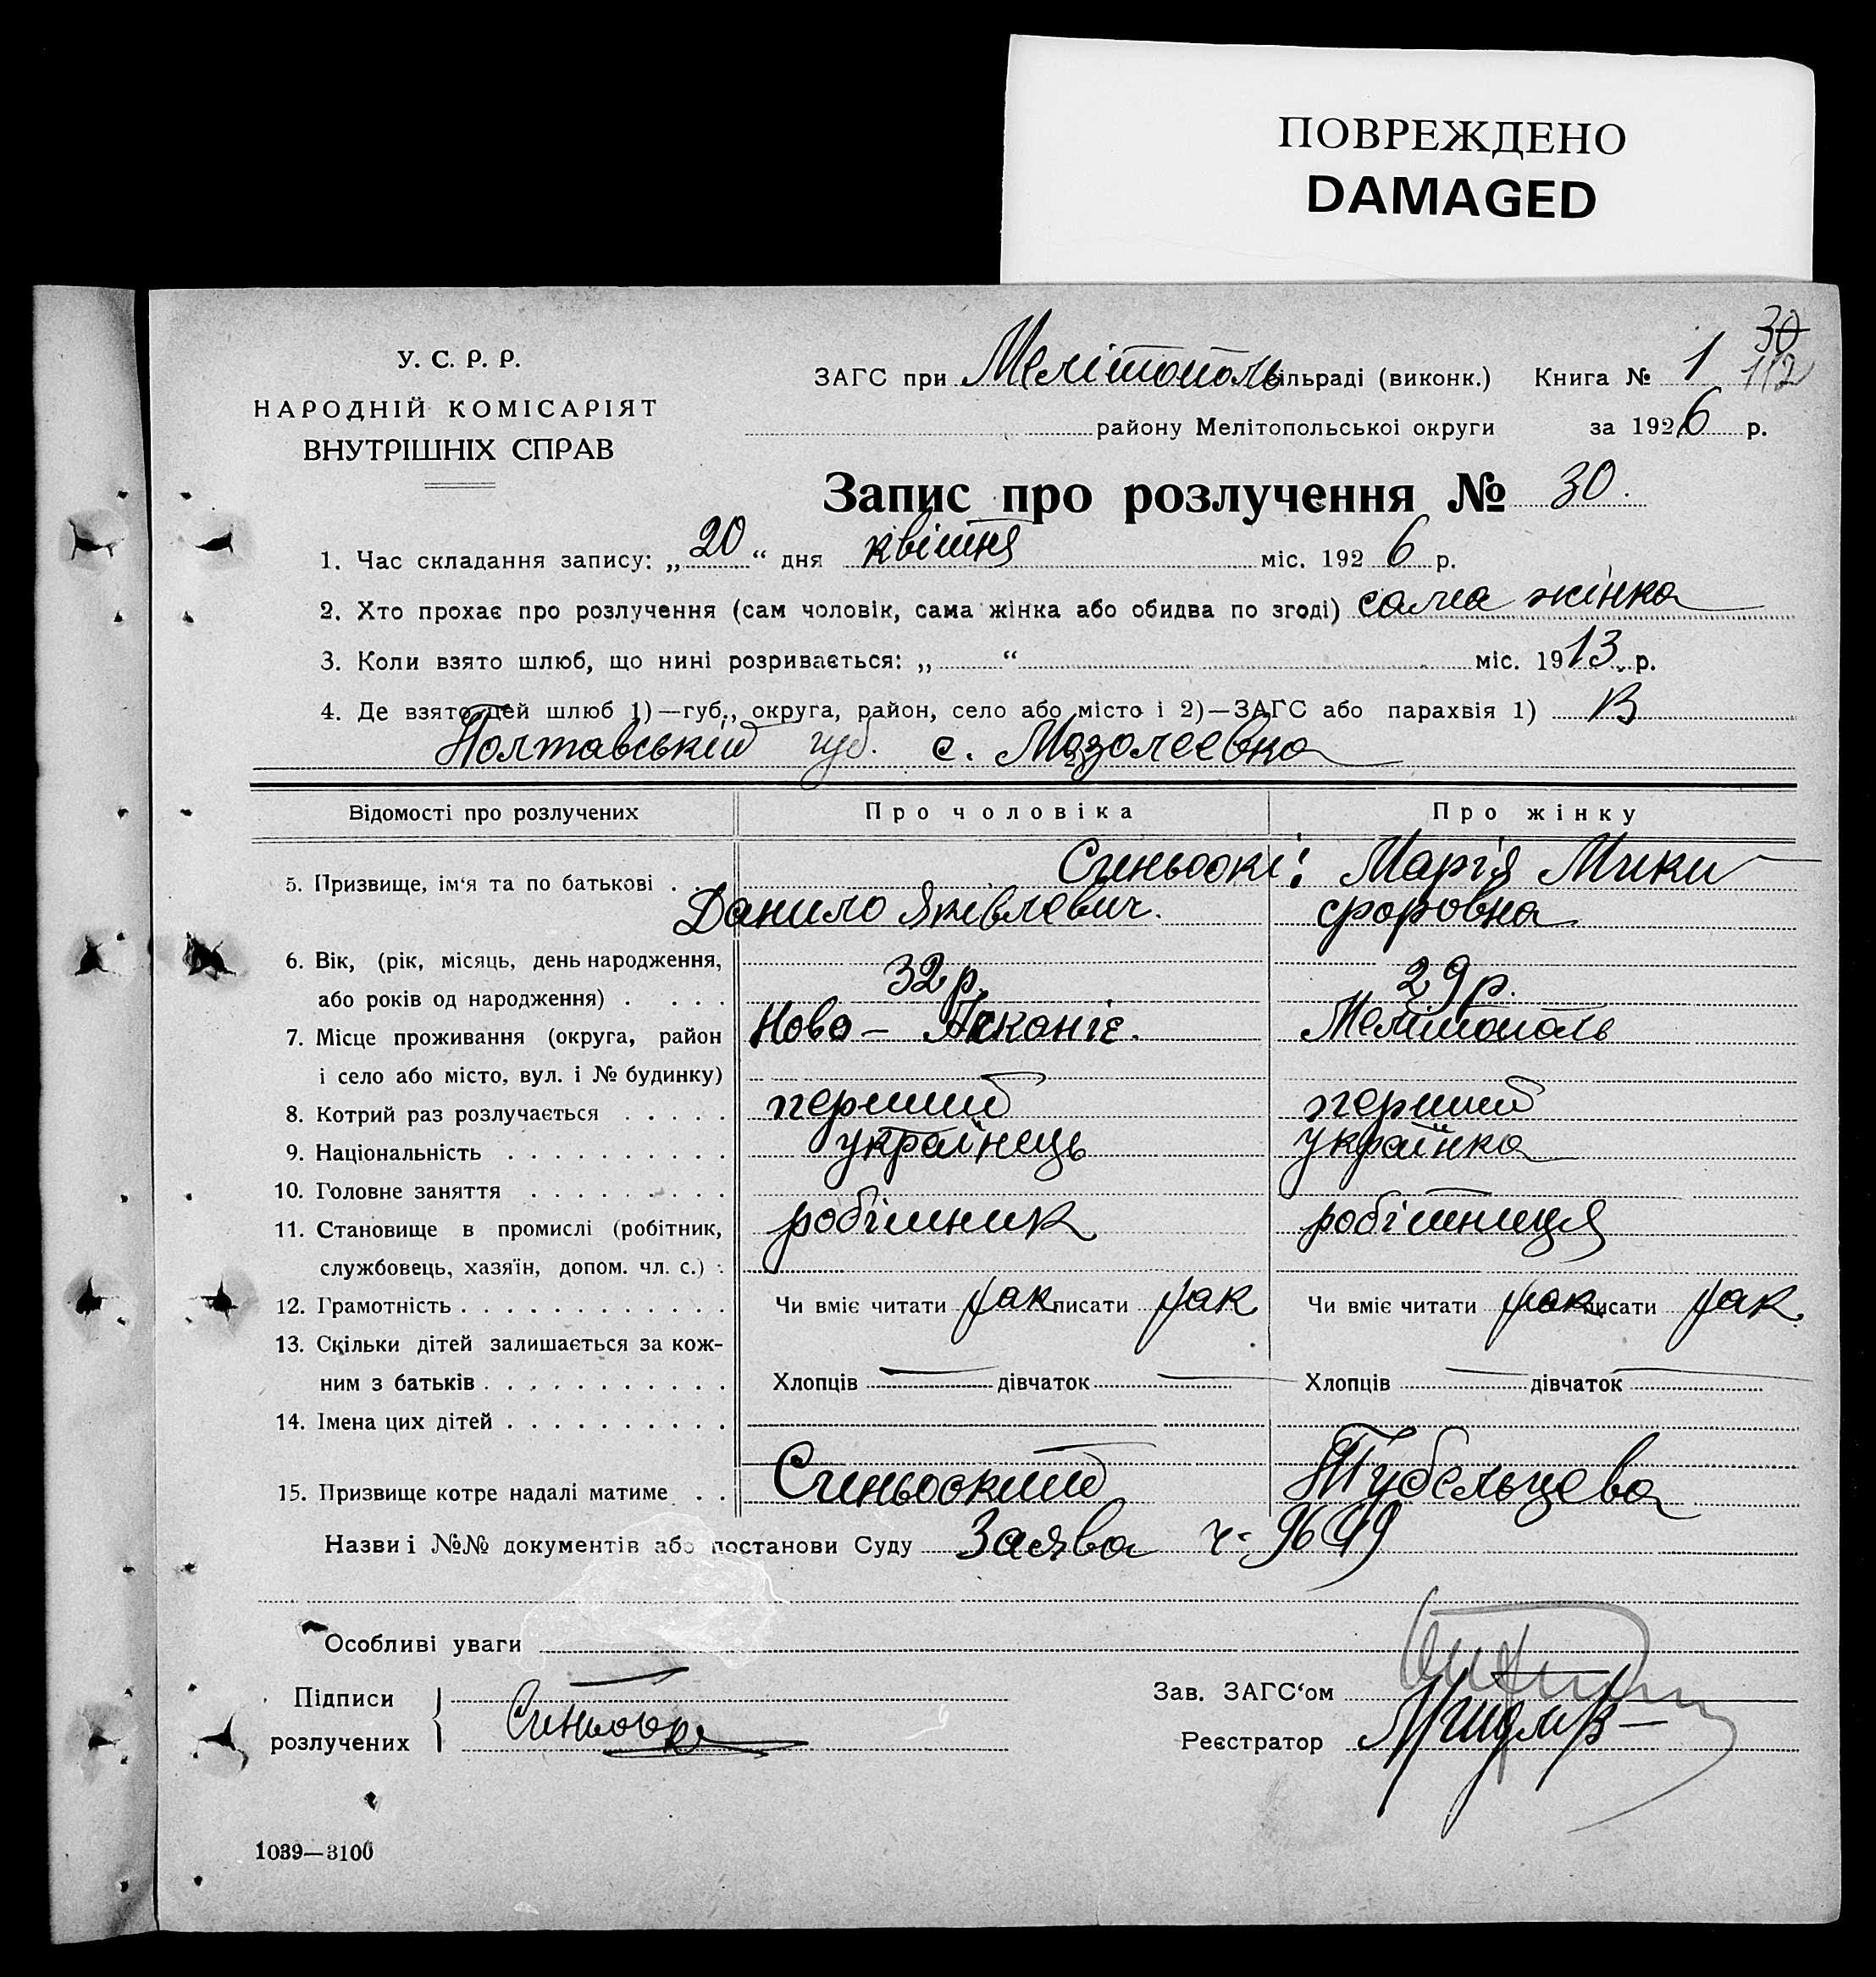 ПОВРЕЖДЕНО
DAMAGED
30
112
У. С. Р. Р.
НАРОДНІЙ КОМІСАРІЯТ
ВНУТРІШНІХ СПРАВ
ЗАГС при Мелітополь сільраді (виконк.) Книга № 1
району Мелітопольської округи за 1926 р.
Запис про розлучення № 30.
1. Час складання запису: „20“ дня квітня міс. 1926 р.
2. Хто прохає про розлучення (сам чоловік, сама жінка або обидва по згоді) сама жінка
3. Коли взято шлюб, що нині розривається: „ “ міс. 1913 р.
4. Де взято цей шлюб 1)—губ., округа, район, село або місто і 2)—ЗАГС або парахвія 1) В
Полтавській губ. с. Мозолеевка
Відомості про розлучених Про чоловіка Про жінку
5. Призвище, ім‘я та по батькові . . Синьоокі: Марія Мики
Данило Яківлевич. форовна
6. Вік, (рік, місяць, день народження,
або років од народження) . . . . 32 р. 29 р.
7. Місце проживання (округа, район Ново – Асканіє. Мелітополь
і село або місто, вул. і № будинку)
8. Котрий раз розлучається . . . . . перший перший
9. Національність . . . . . . . . . . українець українка
10. Головне заняття . . . . . . . . .
11. Становище в промислі (робітник, робітник робітниця
службовець, хазяїн, допом. чл. с.) .
12. Грамотність . . . . . . . . . . . . Чи вміє читати так писати так Чи вміє читати так писати так.
13. Скільки дітей залишається за кож-
ним з батьків . . . . . . . . . . . Хлопців — дівчаток — Хлопців — дівчаток —
14. Імена цих дітей . . . . . . . . . .
15. Призвище котре надалі матиме . . Синьоокий Тубельцева
Назви і №№ документів або постанови Суду Заява ч. 9649
Особливі уваги
Підписи
розлучених Синьоок
Зав. ЗАГС‘ом
Реєстратор
1039—3100